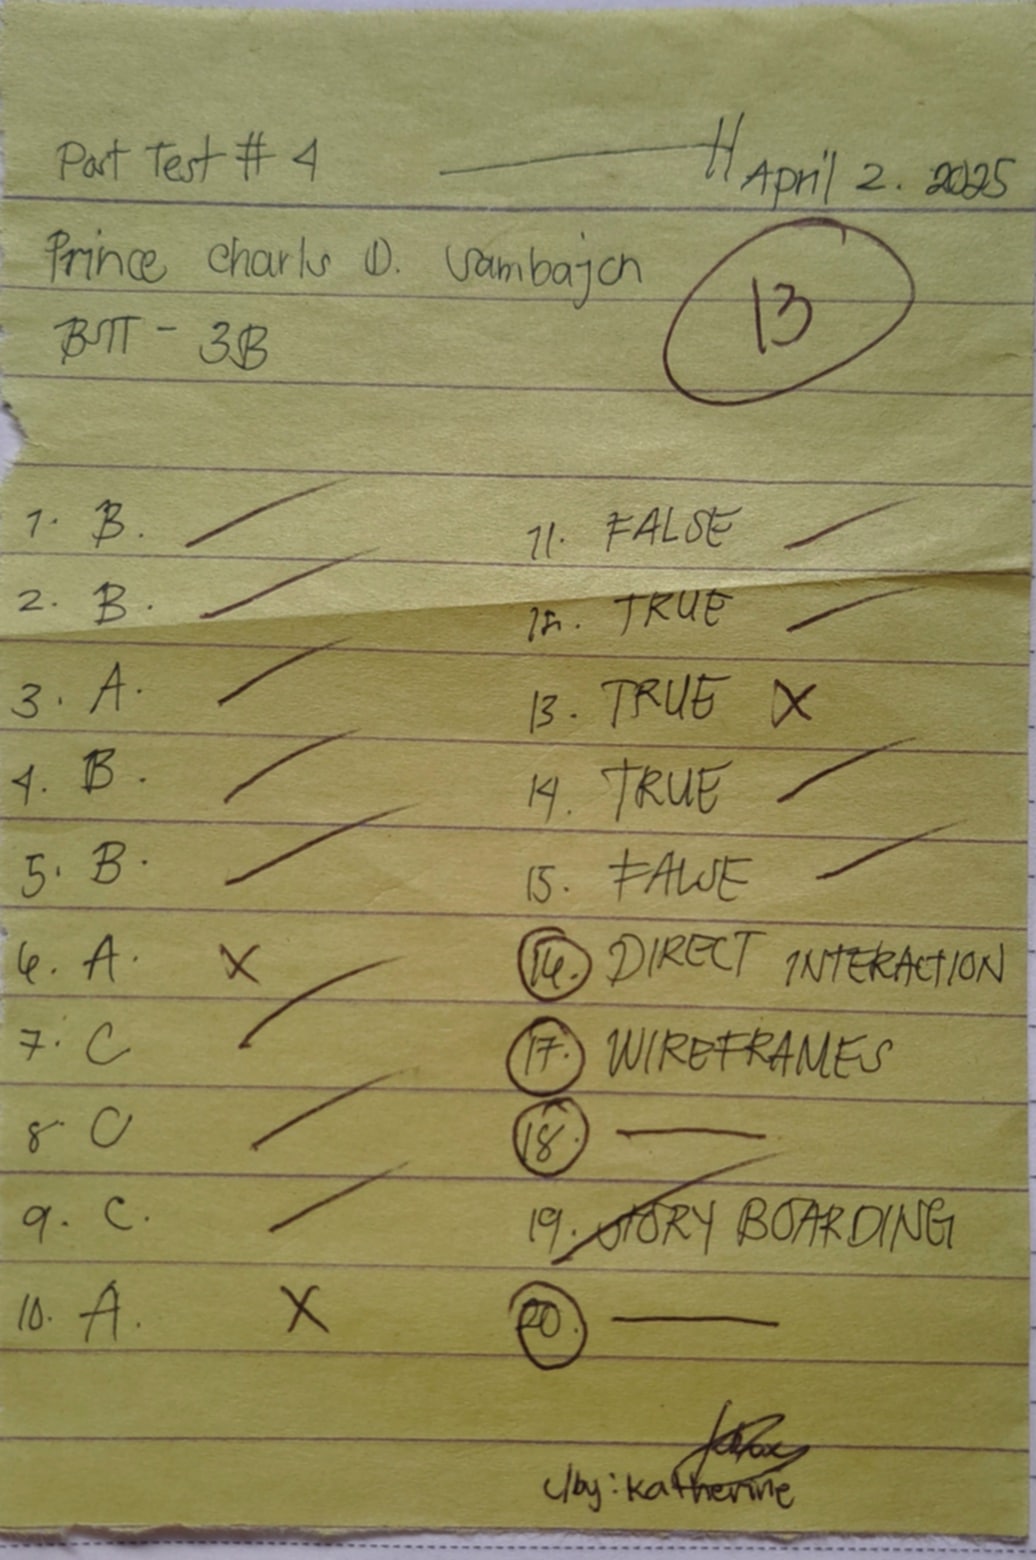 Post Test # 4
April 2. 2025
Prince Charls D. Sambajon
BSIT - 3B
13
1. B.
2. B.
3. A.
4. B.
5. B.
6. A.
7. C
8. C
9. C.
10. A.
11. FALSE
12. TRUE
13. TRUE
14. TRUE
15. FALSE
16. DIRECT INTERACTION
17. WIREFRAMES
18.
19. STORY BOARDING
20.
c/by: Katherine